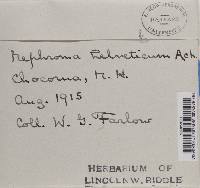 Nephroma helveticum Ach.
Chocorua, N. H.
Aug. 1915
Coll. W. G. Farlow
HERBARIUM OF
LINCOLN W. RIDDLE